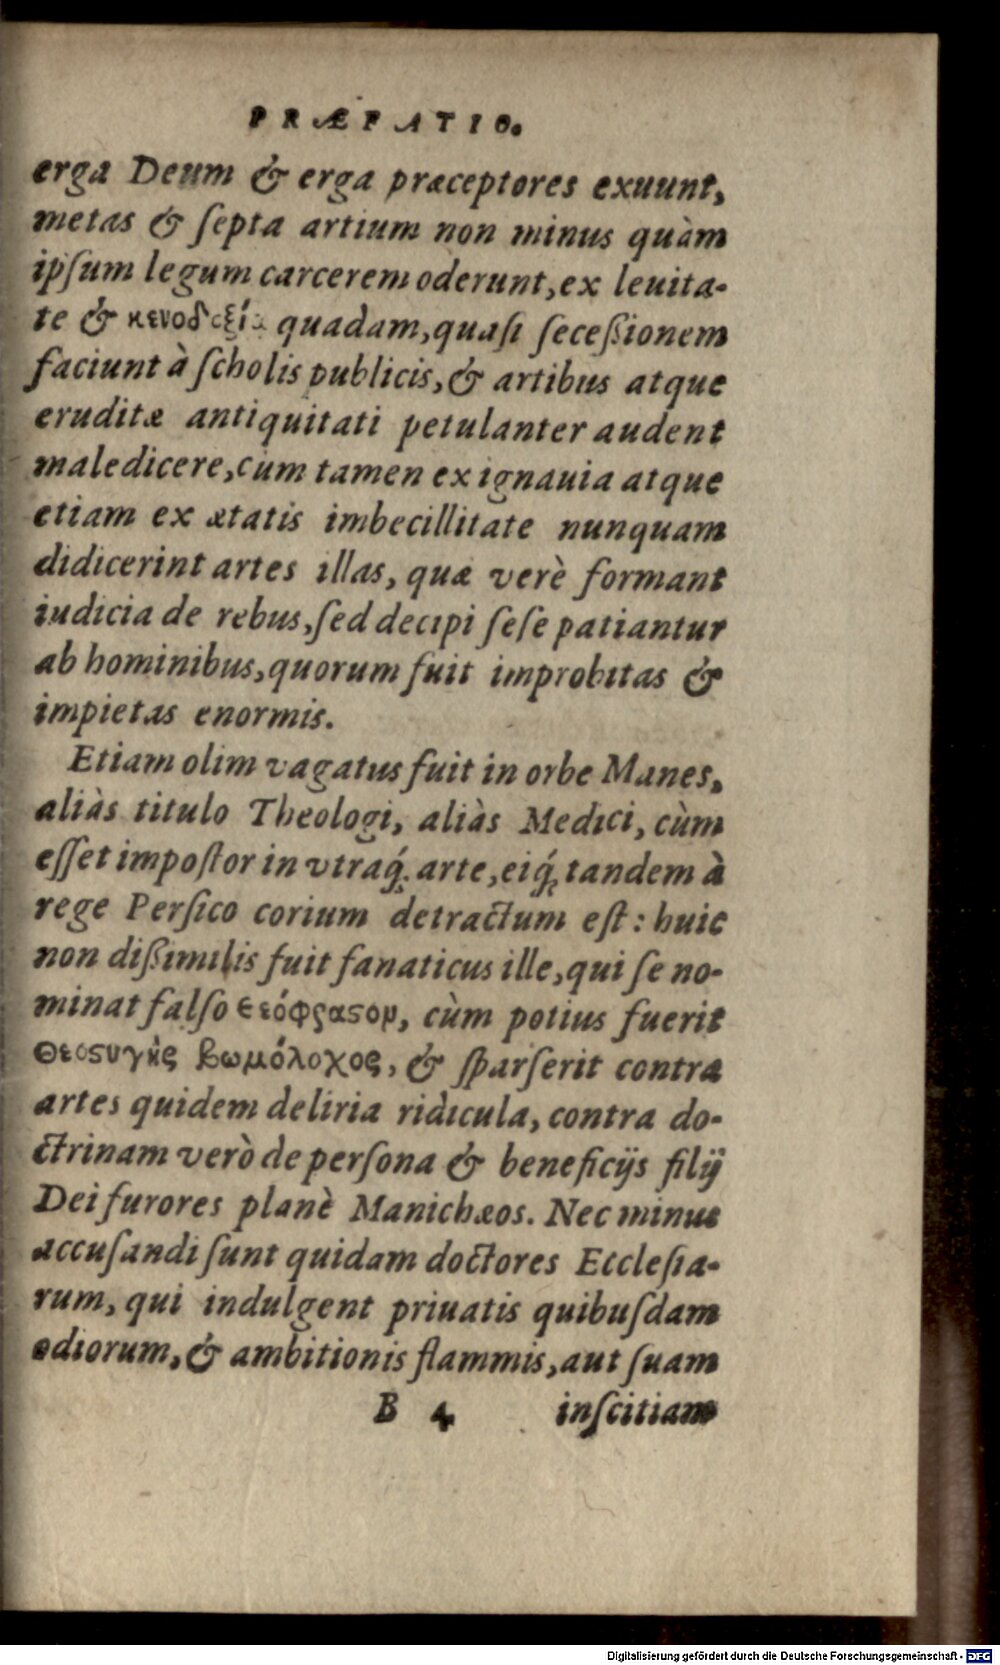 PRÆFATIO.
erga Deum & erga præceptores exuunt,
metas & ſepta artium non minus quàm
ipſum legum carcerem oderunt, ex leuita-
te & κενοδοξίᾳ quadam, quaſi ſeceßionem
faciunt à ſcholis publicis, & artibus atque
eruditæ antiquitati petulanter audent
maledicere, cùm tamen ex ignauia atque
etiam ex ætatis imbecillitate nunquam
didicerint artes illas, quæ verè formant
iudicia de rebus, ſed decipi ſeſe patiantur
ab hominibus, quorum fuit improbitas &
impietas enormis.
Etiam olim vagatus fuit in orbe Manes,
aliàs titulo Theologi, aliàs Medici, cùm
eſſet impoſtor in vtraq́; arte, eiq́; tandem à
rege Perſico corium detractum eſt: huic
non dißimilis fuit fanaticus ille, qui ſe no-
minat falſo θεόφραϛον, cùm potius fuerit
Θεοϛυγὴς βωμόλοχος, & ſparſerit contra
artes quidem deliria ridicula, contra do-
ctrinam verò de perſona & beneficijs filij
Dei furores planè Manichæos. Nec minus
accuſandi ſunt quidam doctores Eccleſia-
rum, qui indulgent priuatis quibuſdam
odiorum, & ambitionis flammis, aut ſuam
B 4 inſcitiam
Digitalisierung gefördert durch die Deutsche Forschungsgemeinschaft - DFG